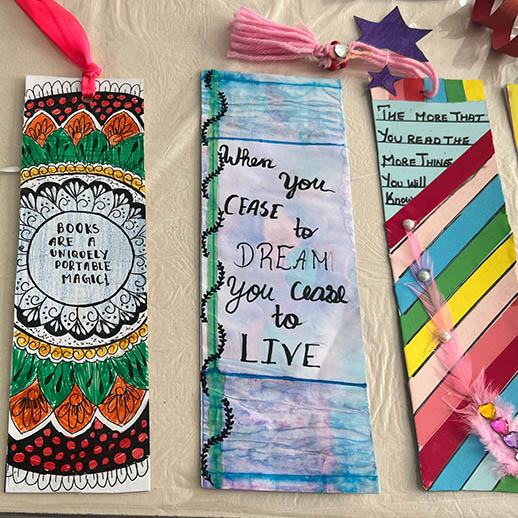 BOOKS
ARE A
UNIQUELY
PORTABLE
MAGIC!
When
you
CEASE to
DREAM
You cease
to
LIVE
THE MORE THAT
YOU READ THE
MORE THINGS
YOU WILL
KNOW